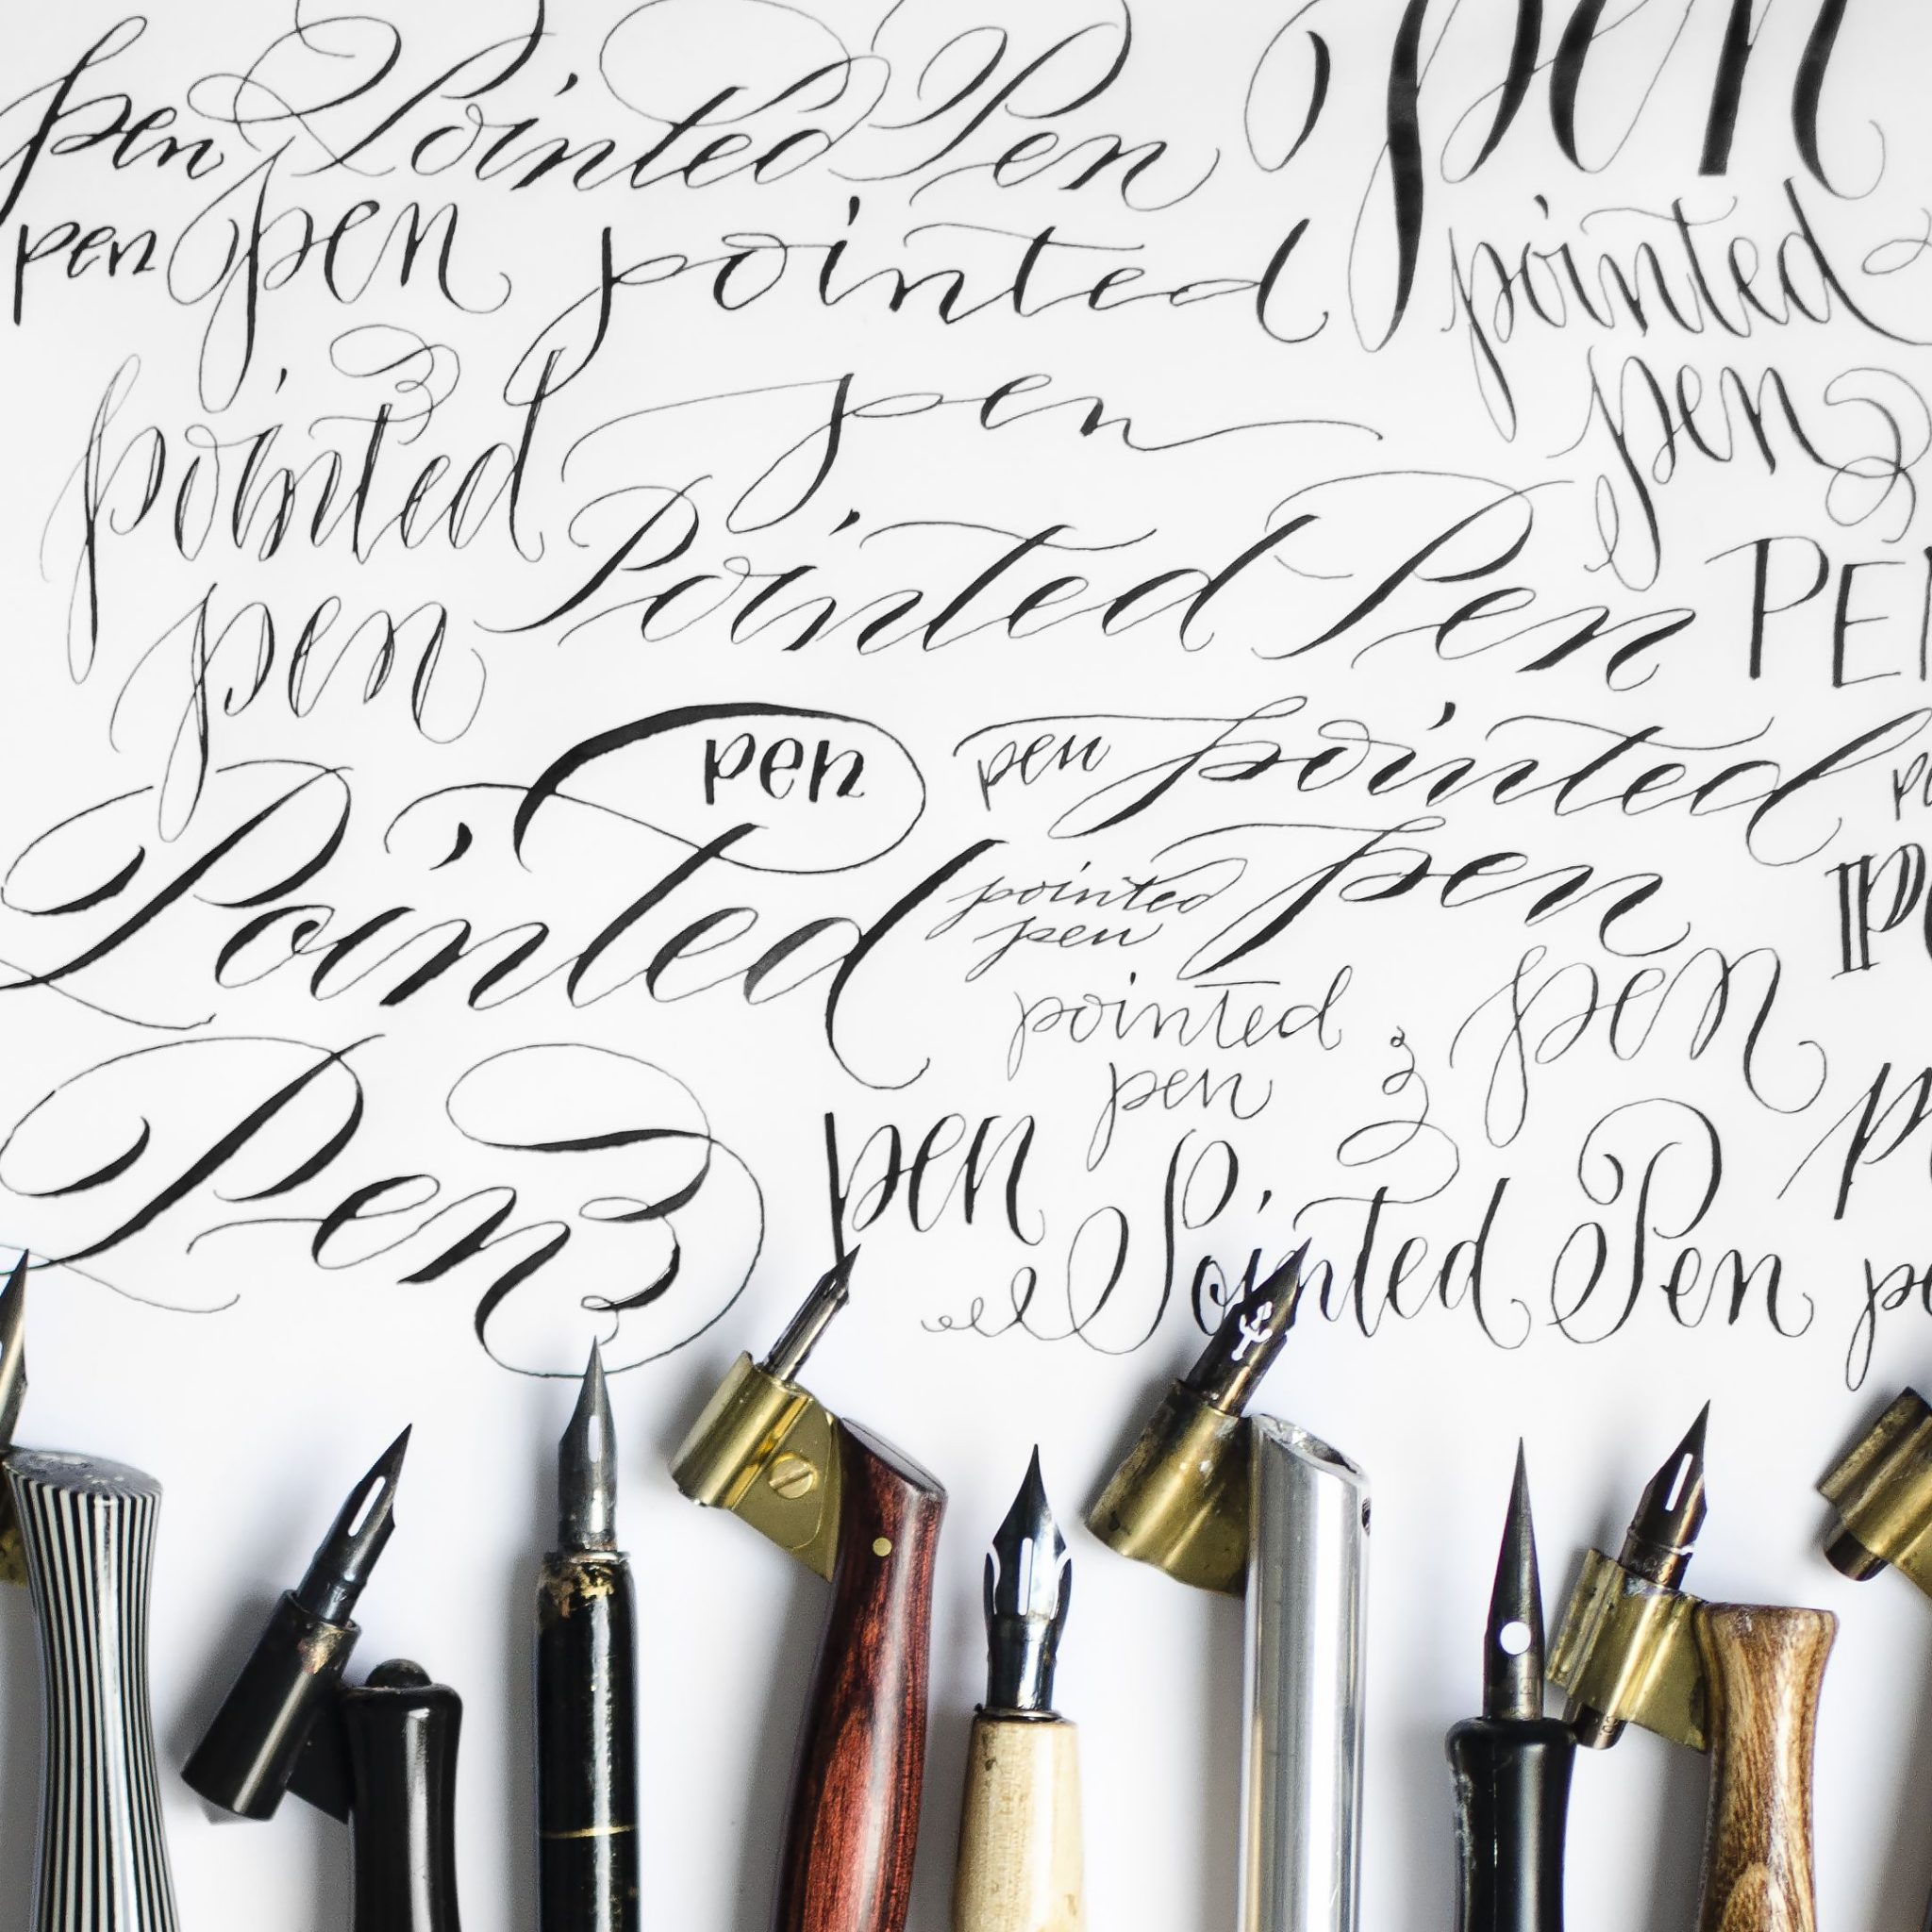 pen Pointed Pen pen
pen pen pointed pointed
pointed pen pen
Pointed Pen
pen
pen pen pointed
Pointed pointed pen
pen
pointed pen
Pen pen
pen
Pointed Pen